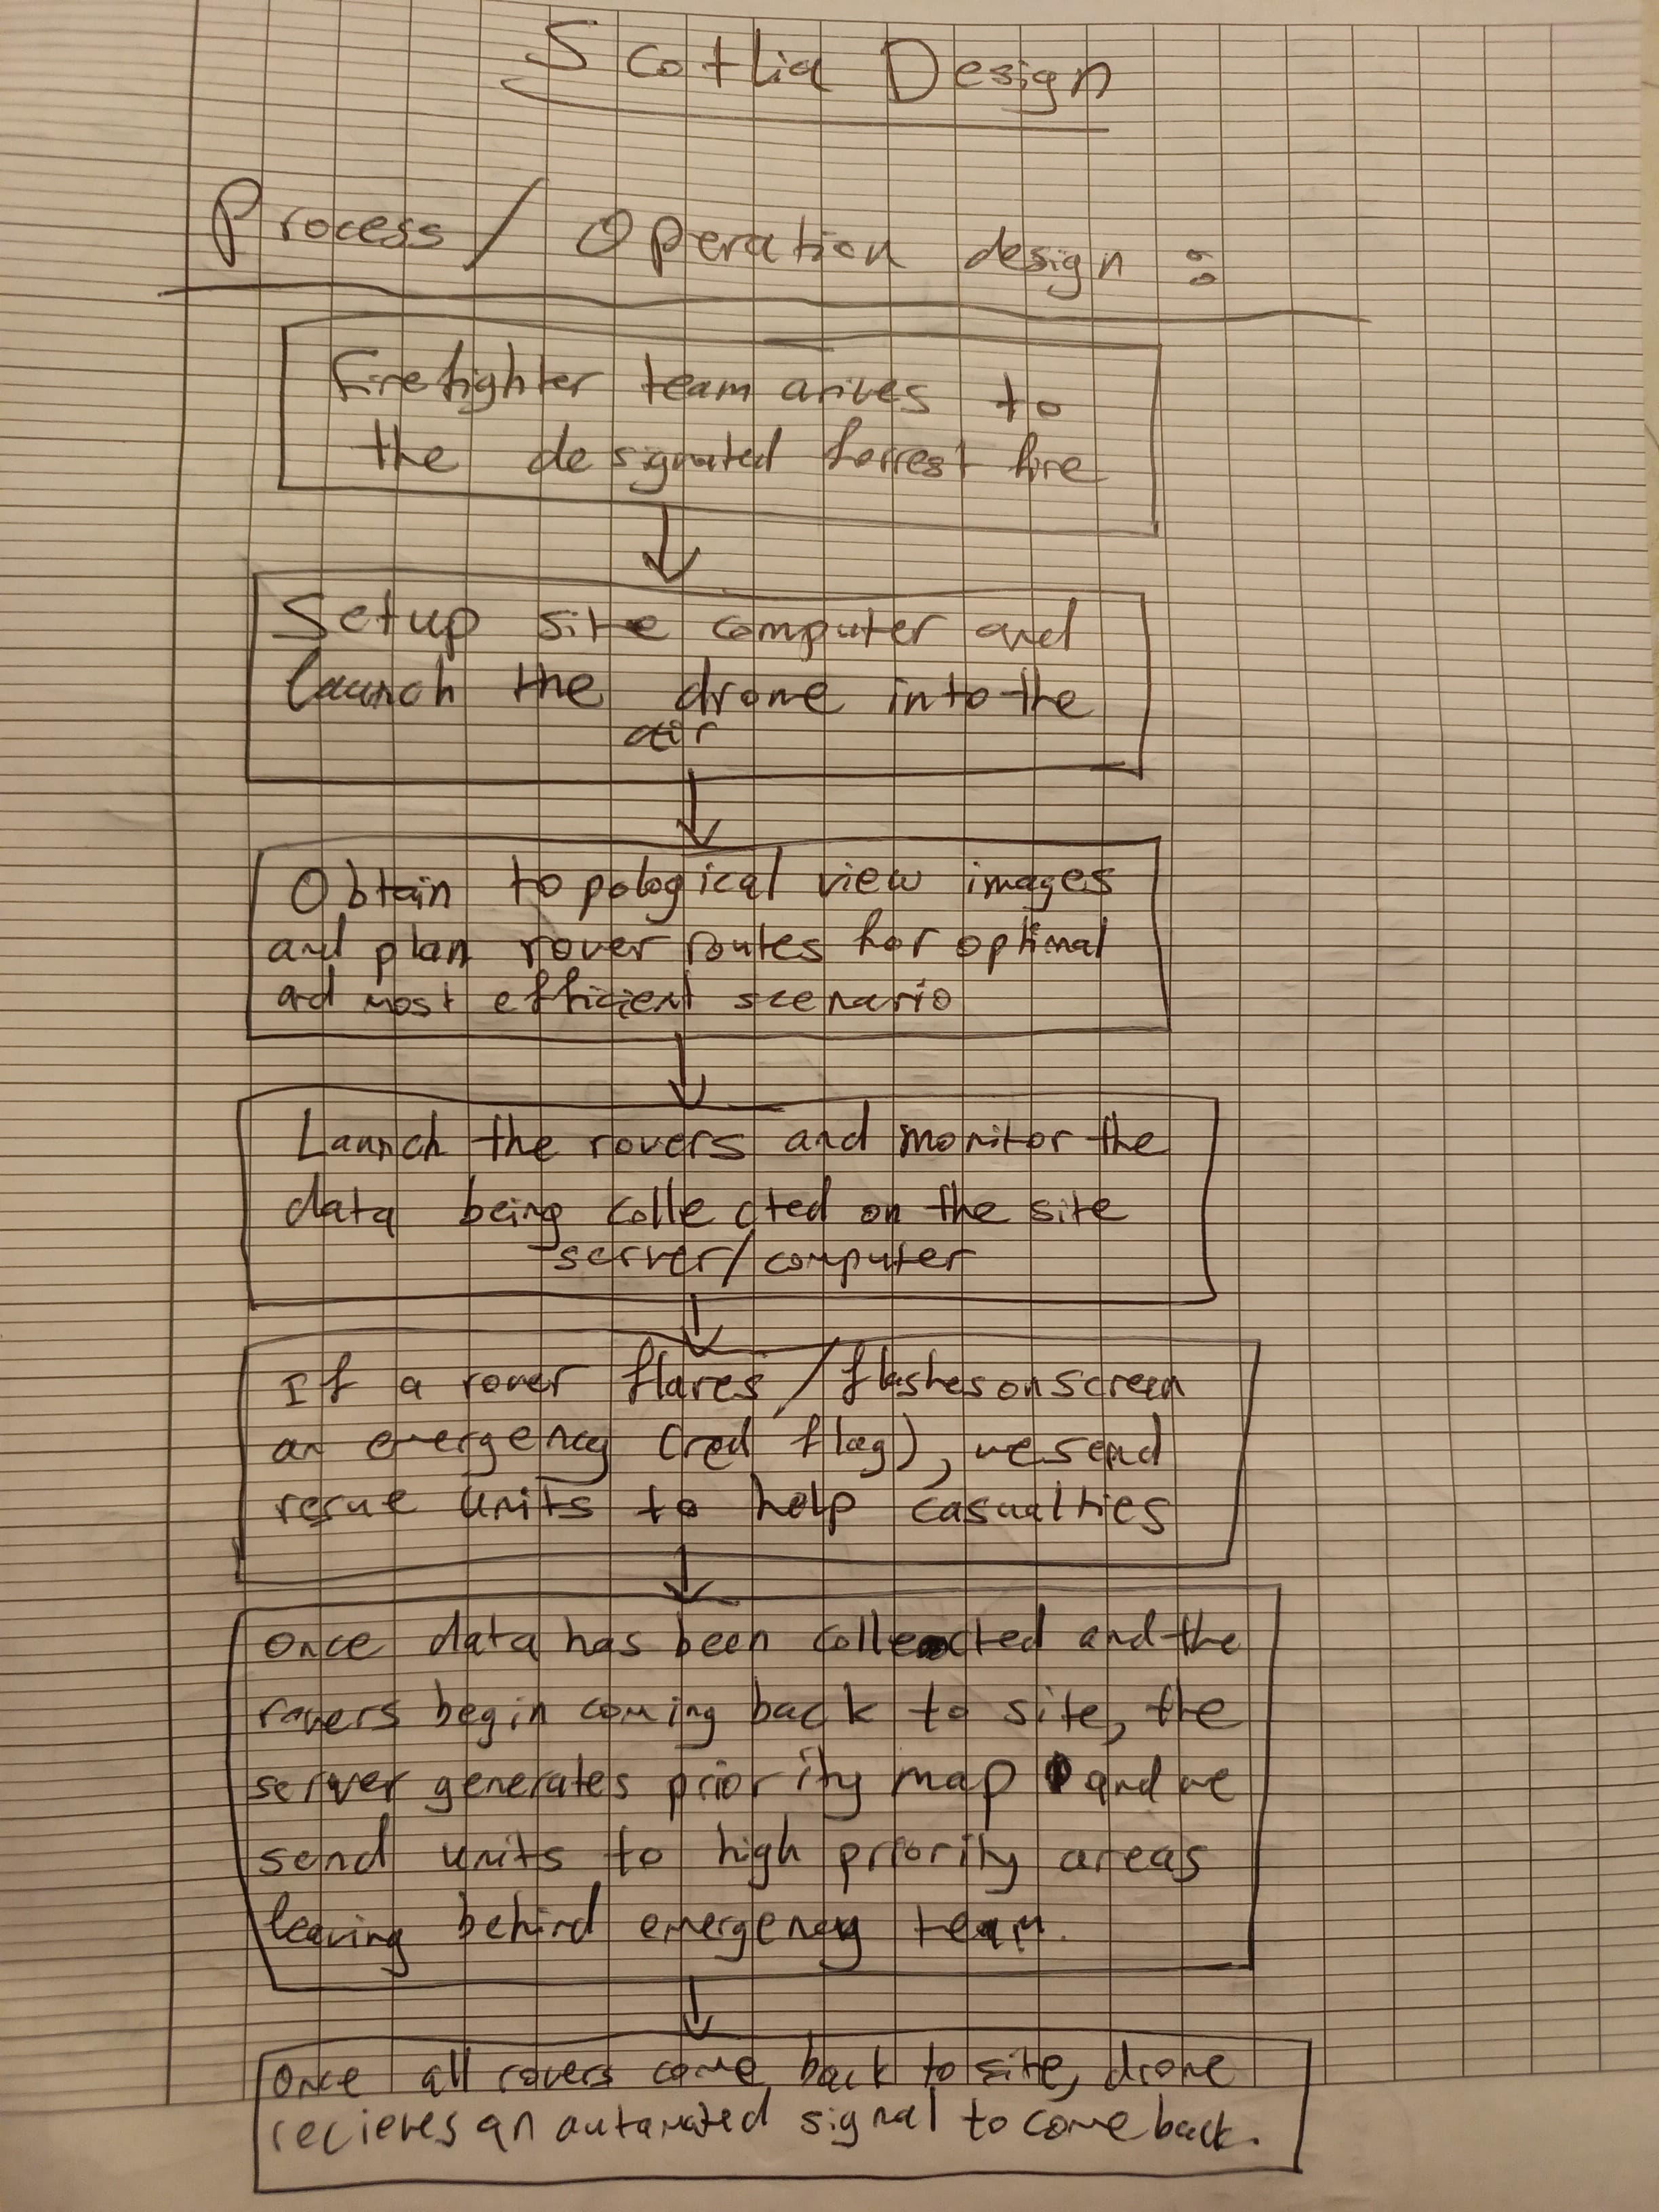 Scotlia Design
Process / Operation design :
Firefighter team arives to
the designated forrest fire
Setup site computer and
launch the drone into the
air
Obtain topological view images
and plan rover routes for optimal
and most efficient scenario
Launch the rovers and monitor the
data being collected on the site
server/computer
If a rover flares / flashes on screen
an emergency (red flag), we send
rescue units to help casualties
Once data has been collected and the
rovers begin coming back to site, the
server generates priority map and we
send units to high priority areas
leaving behind emergency team.
Once all rovers come back to site, drone
recieves an automated signal to come back.